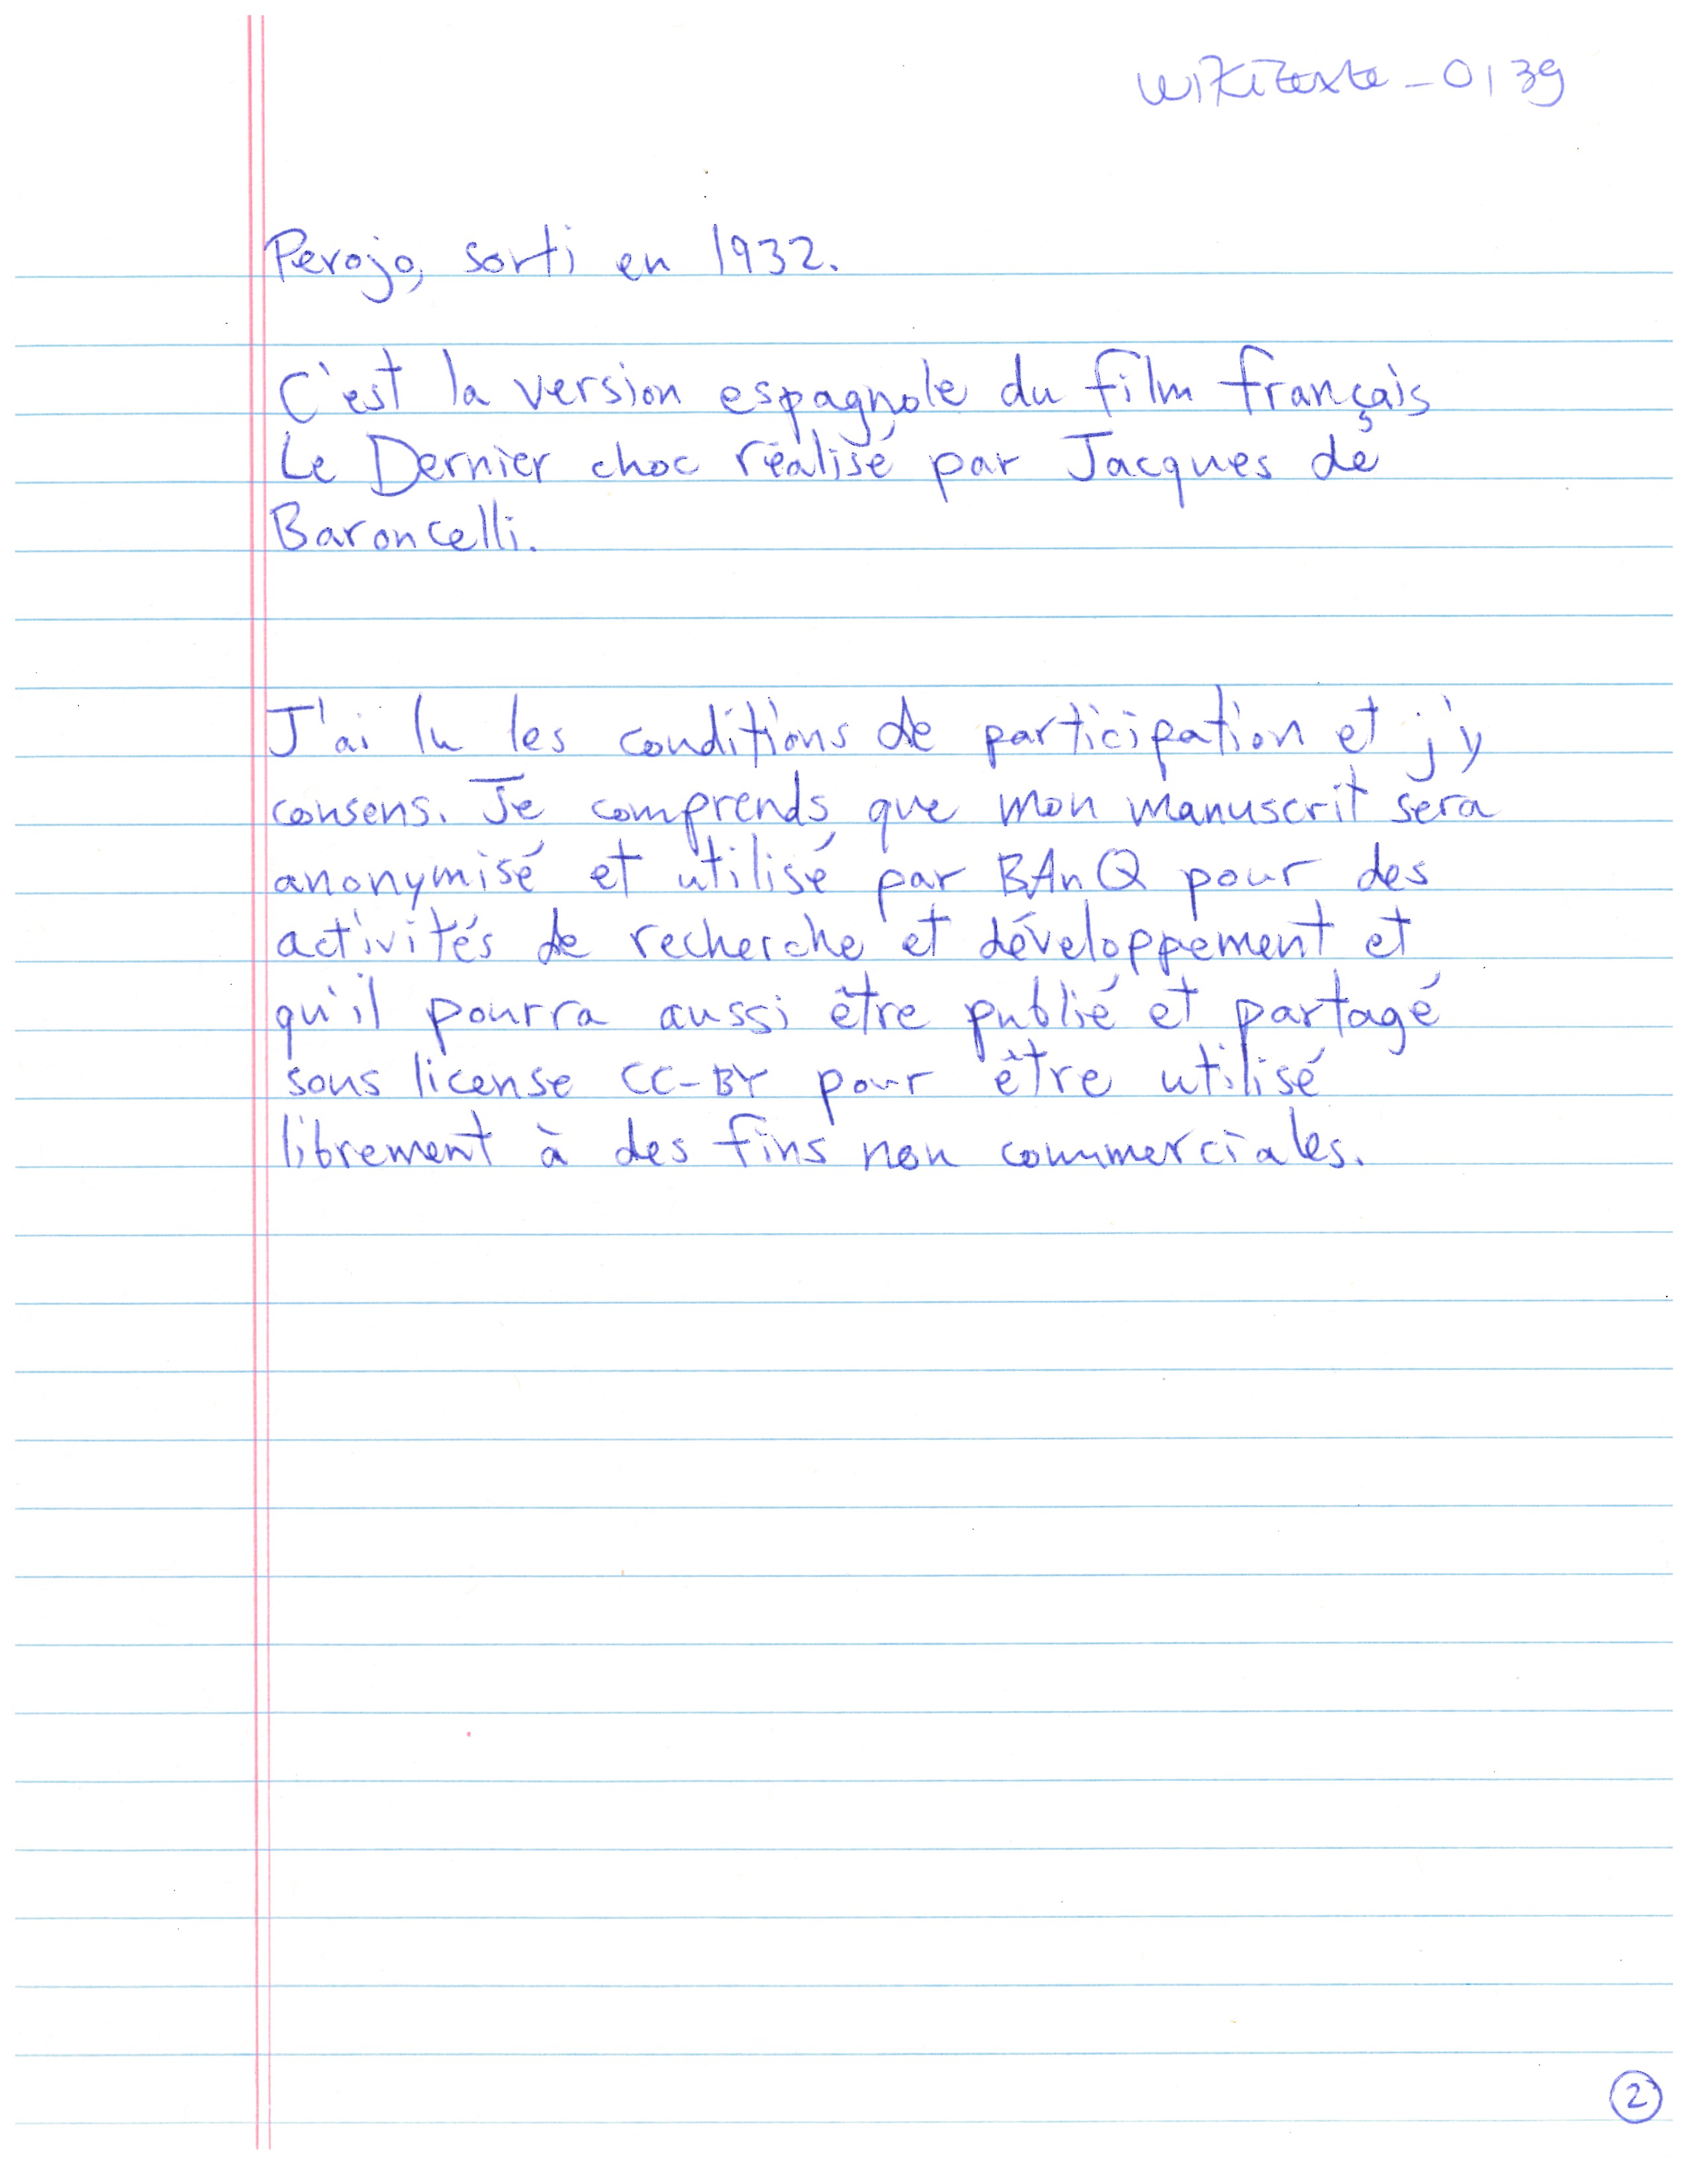 Wikitexte_0139
Perojo, sorti en 1932.
C'est la version espagnole du film français
Le Dernier choc réalisé par Jacques de
Baroncelli.
J'ai lu les conditions de participation et j'y
consens. Je comprends que mon manuscrit sera
anonymisé et utilisé par BAnQ pour des
activités de recherche et développement et
qu'il pourra aussi être publié et partagé
sous license CC-BY pour être utilisé
librement à des fins non commerciales.
2